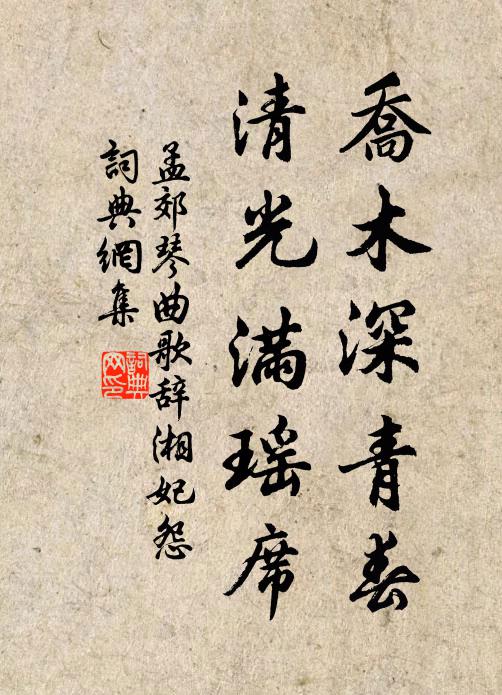 喬木深青春
清光滿瑶席
孟郊琴曲歌辞湘妃怨
詞典網集
詞典网印